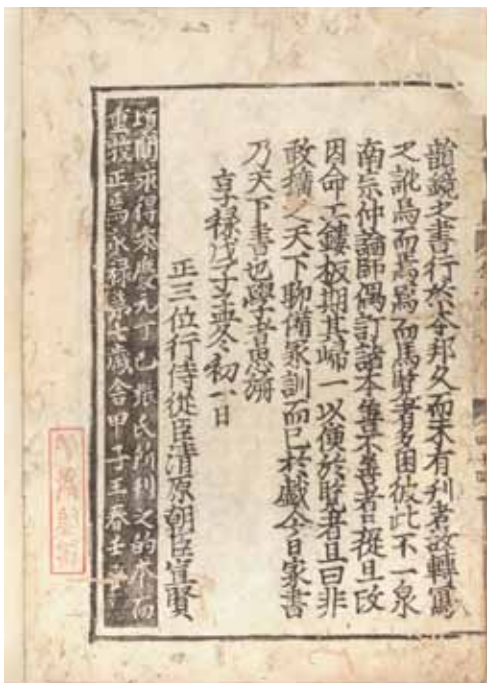 韻鏡之書行於本邦久而未有刊者故轉寫
之訛烏而焉焉而馬覽者多困彼此不一泉
南宗仲論師偶訂諸本善不善者且從且改
因命工鏤板期其歸一以便於覽者且曰非
敢擴之天下聊備家訓而已於戲今日家書
乃天下書也學者思旃
享祿戊子孟冬初一日
正三位行侍從臣清原朝臣宣賢
頃間求得宋慶元丁巳張氏所刊之的本而
重校正焉永祿第七歲舍甲子王春壬